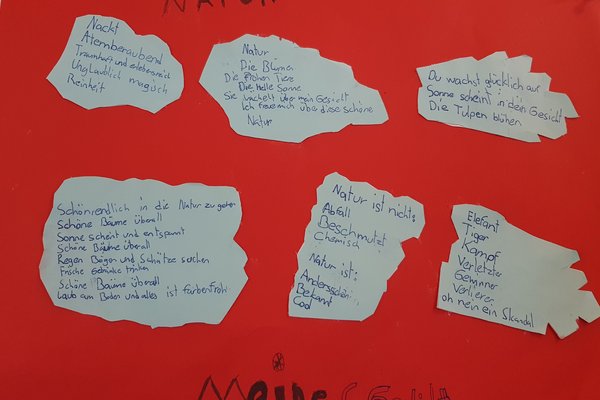 NATUR
Nackt
Atemberaubend
Traumhaft und erlebnisreich
Unglaublich magisch
Reinheit
Natur
Die Blumen
Die frohen Tiere
Die Helle Sonne
Sie wackelt über mein Gesicht
Ich freue mich über diese schöne
Natur
Du wachst glücklich auf
Sonne scheint in dein Gesicht
Die Tulpen blühen
Schön endlich in die Natur zu gehen
Schöne Bäume überall
Sonne scheint und entspannt
Schöne Bäume überall
Regen Bögen und Schätze suchen
Frische Getränke trinken
Schöne Bäume überall
Laub am Boden und alles ist farbenfroh
Natur ist nicht:
Abfall
Beschmutzt
Chemisch
Natur ist:
Anders schön
Bekannt
Cool
Elefant
Tiger
Kampf
Verletzte
Gewinner
Verlierer
oh nein ein Skandal